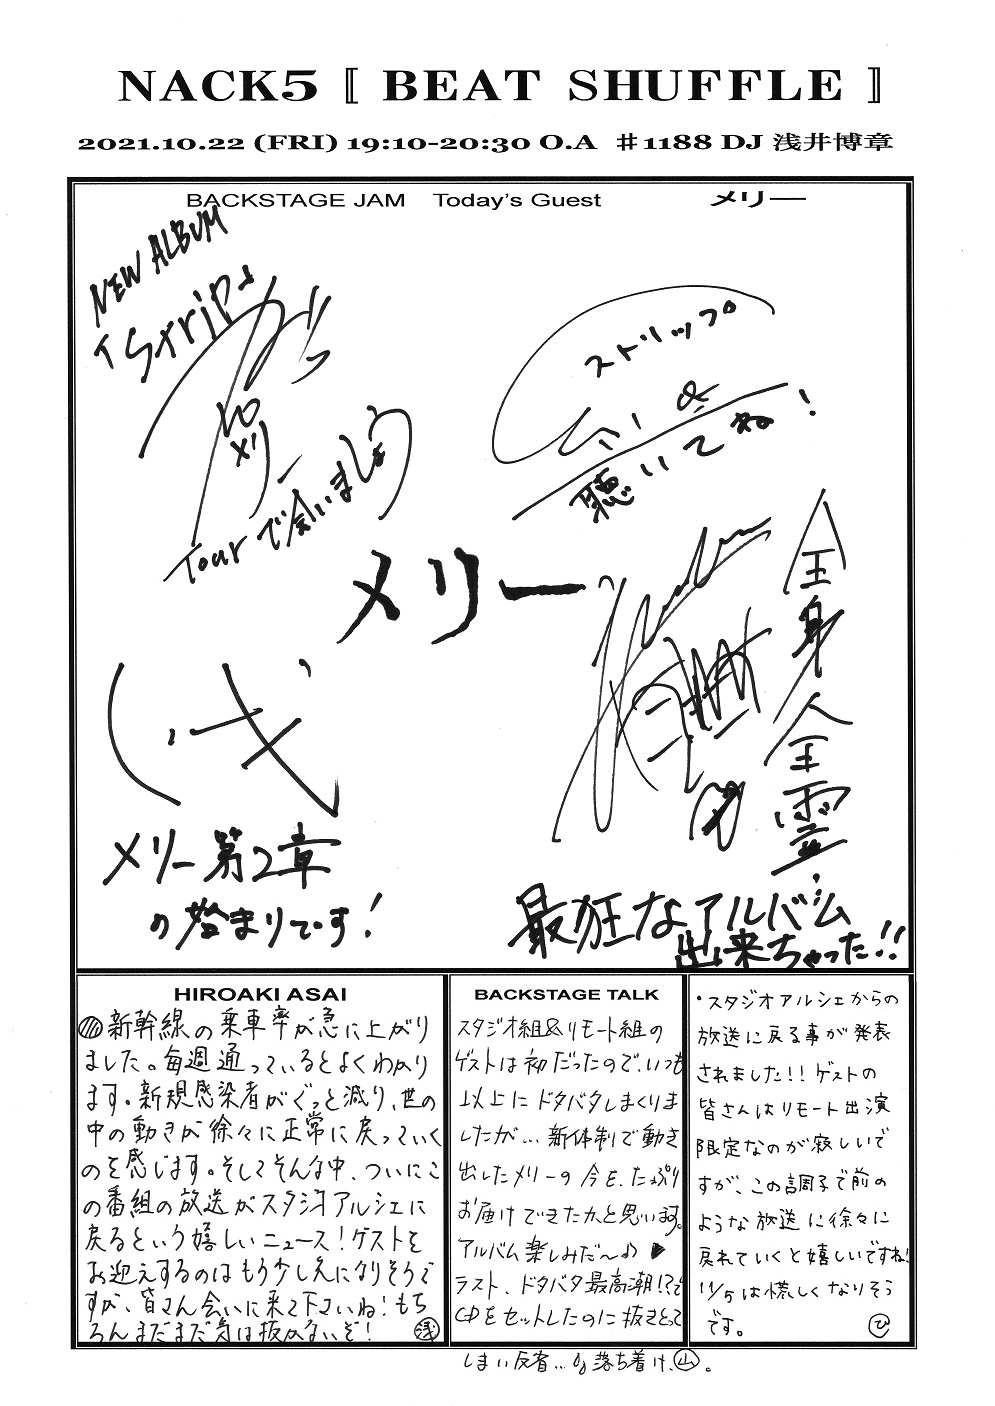 NACK5 〚 BEAT SHUFFLE 〛
2021.10.22 (FRI) 19:10-20:30 O.A ♯1188 DJ 浅井博章
BACKSTAGE JAM Today's Guest メリー
NEW ALBUM
「Strip」
ガラ
メリー
Tourで会いましょう
ストリップ
聴いてね!
メリー
メリー第2章
の始まりです!
全身全霊
最狂なアルバム
出来ちゃった!!
HIROAKI ASAI
新幹線の乗車率が急に上がり
ました。毎週通っているとよくわかり
ます。新規感染者がぐっと減り、世の
中の動きが徐々に正常に戻っていく
のを感じます。そしてそんな中、ついにこ
の番組の放送がスタジオアルシェに
戻るという嬉しいニュース!ゲストを
お迎えするのはもう少し先になりそうで
すが、皆さん会いに来て下さいね!もち
ろんまだまだ気は抜かないぞ! 浅
BACKSTAGE TALK
スタジオ組&リモート組の
ゲストは初だったので、いつも
以上にドタバタしまくりま
したが…新体制で動き
出したメリーの今を、たっぷり
お届けできたかと思います。
アルバム楽しみだ〜♪
ラスト、ドタバタ最高潮!?で
CDをセットしたのに抜きとって
しまい反省…。落ち着け、山。
・スタジオアルシェからの
放送に戻る事が発表
されました!!ゲストの
皆さんはリモート出演
限定なのが寂しいで
すが、この調子で前の
ような放送に徐々に
戻れていくと嬉しいですね!
11/5は慌しくなりそう
です。 ひ